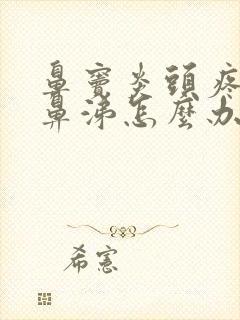 鼻竇炎頭疼
鼻涕怎麼办
希憲